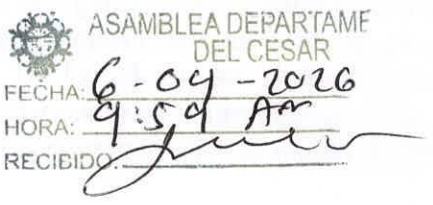 ASAMBLEA DEPARTAME
DEL CESAR
FECHA: 6-04-2026
HORA: 9:59 Am
RECIBIDO: